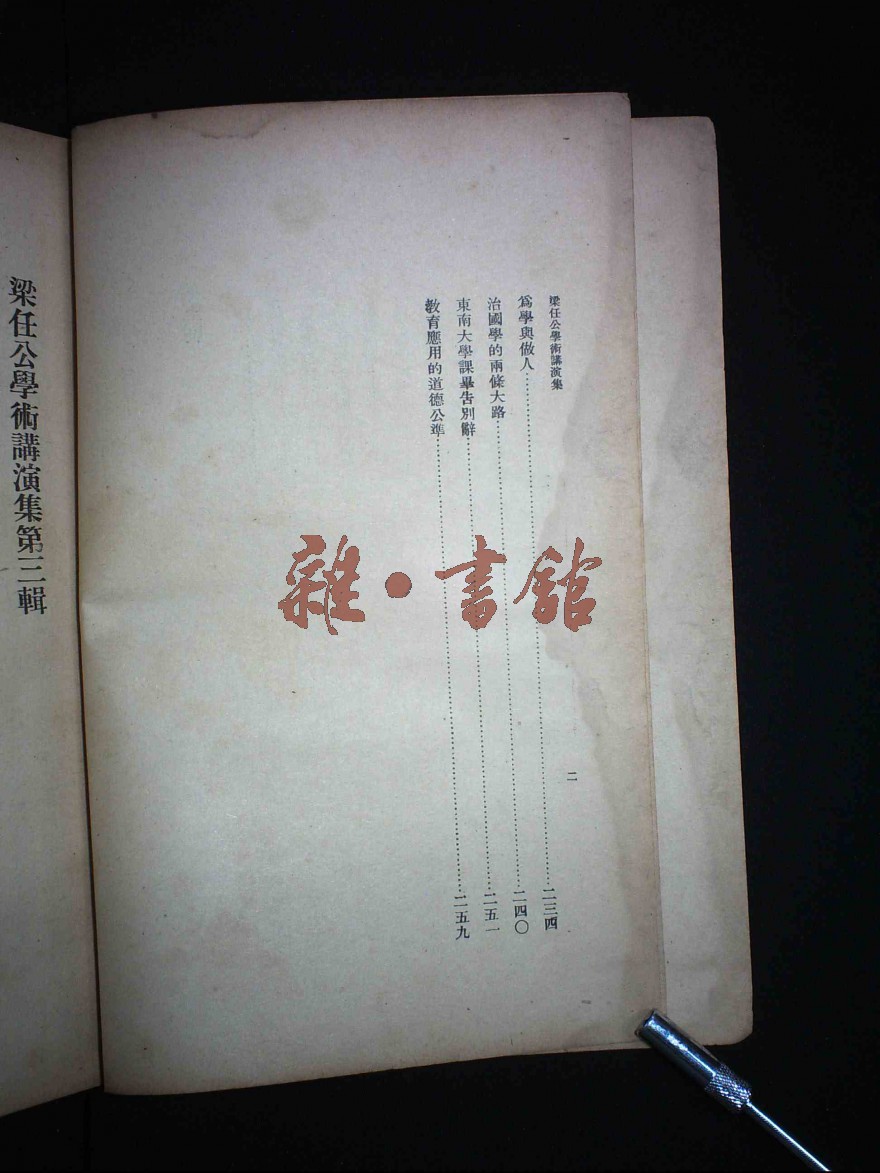 梁任公學術講演集
二
爲學與做人……二三四
治國學的兩條大路……二四〇
東南大學課畢告別辭……二五一
教育應用的道德公準……二五九
梁任公學術講演集第三輯
雜·書館